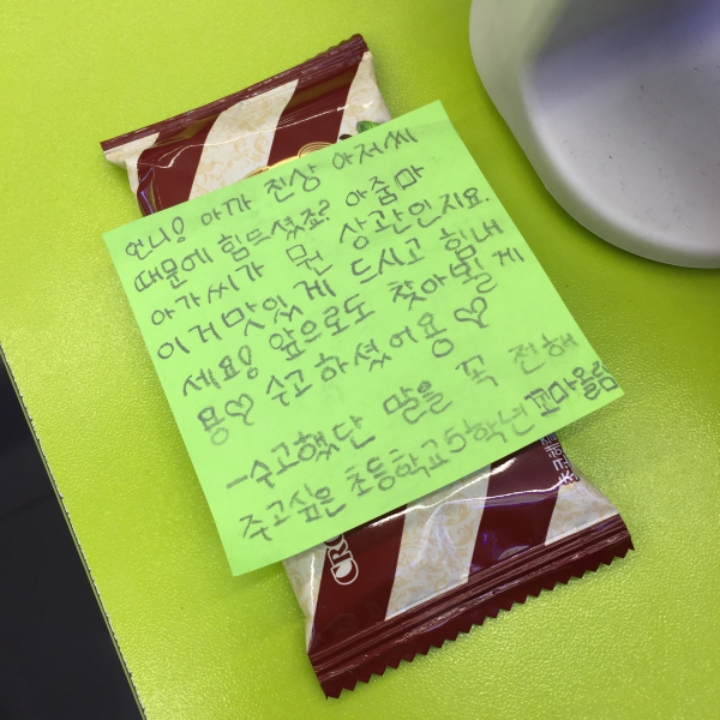 언니! 아까 진상 아저씨
때문에 힘드셨죠? 아줌마
아가씨가 뭔 상관인지요.
이거 맛있게 드시고 힘내
세요! 앞으로도 찾아뵐게
용♡ 수고하셨어용♡
-수고했단 말을 꼭 전해
주고싶은 초등학교5학년 꼬마올림
CRO